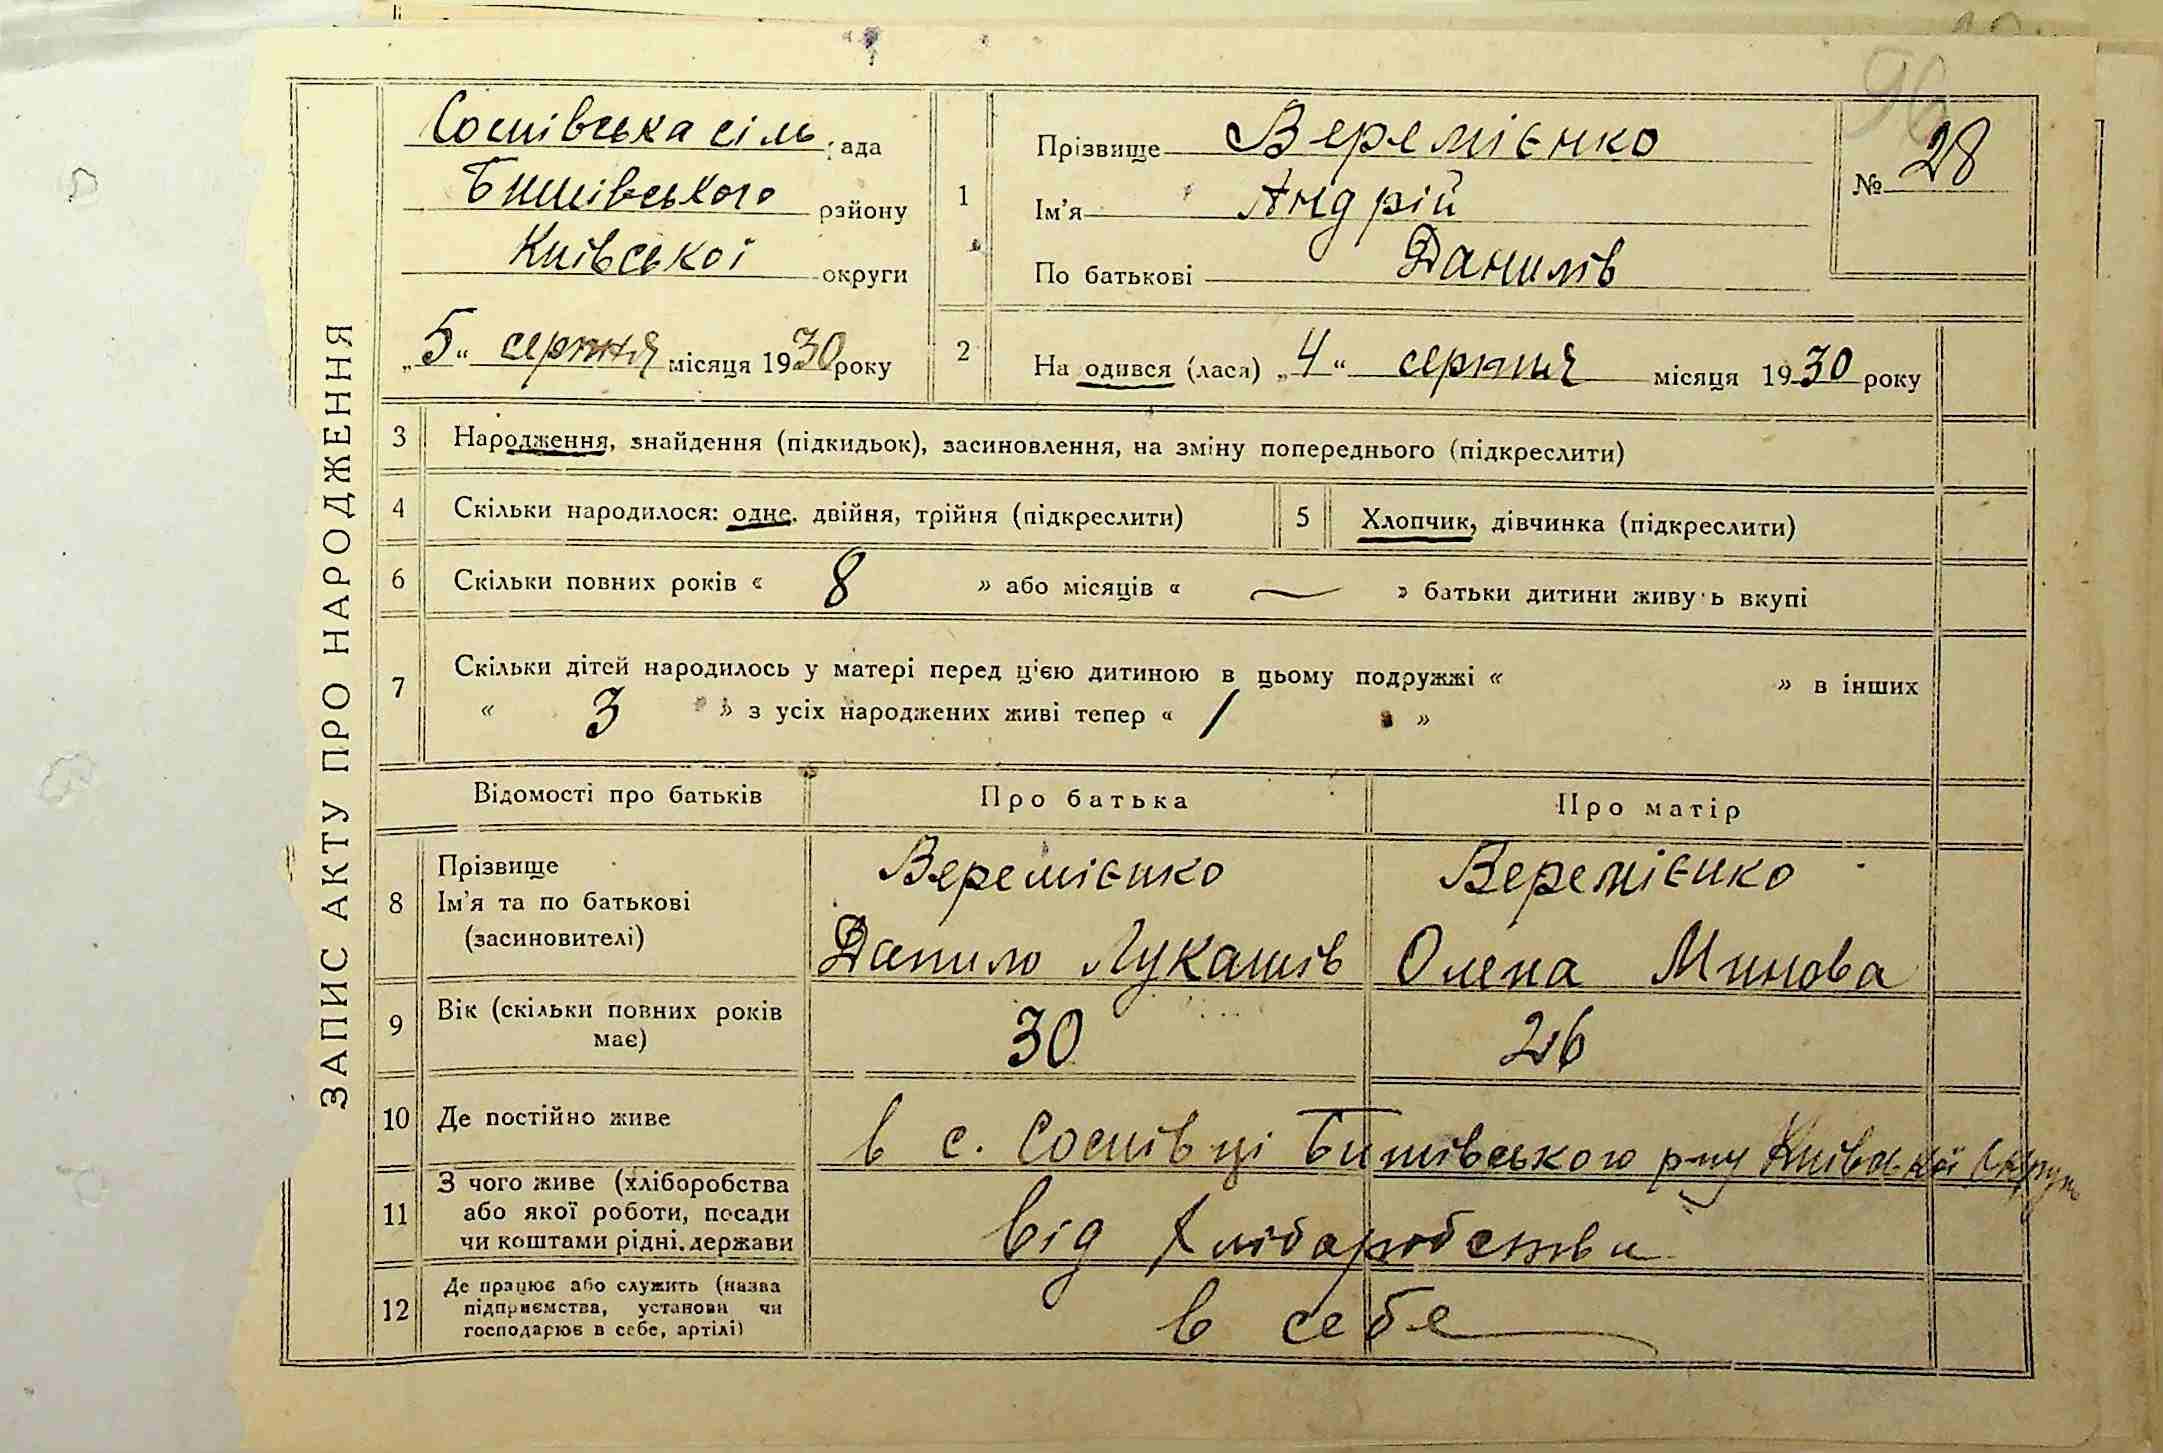 ЗАПИС АКТУ ПРО НАРОДЖЕННЯ
96
Соснівська сіль рада
Бишівського району
Київської округи
„5“ серпня місяця 1930 року
1
Прізвище Веремієнко
Ім'я Андрій
По батькові Данилів
№ 28
2
На одився (лася) „4“ серпня місяця 1930 року
3 Народження, знайдення (підкидьок), засиновлення, на зміну попереднього (підкреслити)
4 Скільки народилося: одне, двійня, трійня (підкреслити)
5 Хлопчик, дівчинка (підкреслити)
6 Скільки повних років « 8 » або місяців « — » батьки дитини живу ь вкупі
7 Скільки дітей народилось у матері перед ц'єю дитиною в цьому подружжі « » в інших
« 3 » з усіх народжених живі тепер « 1 »
Відомості про батьків Про батька Про матір
8
Прізвище
Ім'я та по батькові
(засиновителі)
Веремієнко
Данило Лукашів
Веремієнко
Олена Минова
9
Вік (скільки повних років
має)
30
26
10 Де постійно живе
в с. Соснівці Бишівського р-ну Київської округи
11
З чого живе (хліборобства
або якої роботи, посади
чи коштами рідні, держави
від хліборобства
12
Де працює або служить (назва
підприємства, установи чи
господарює в себе, артілі)
в себе